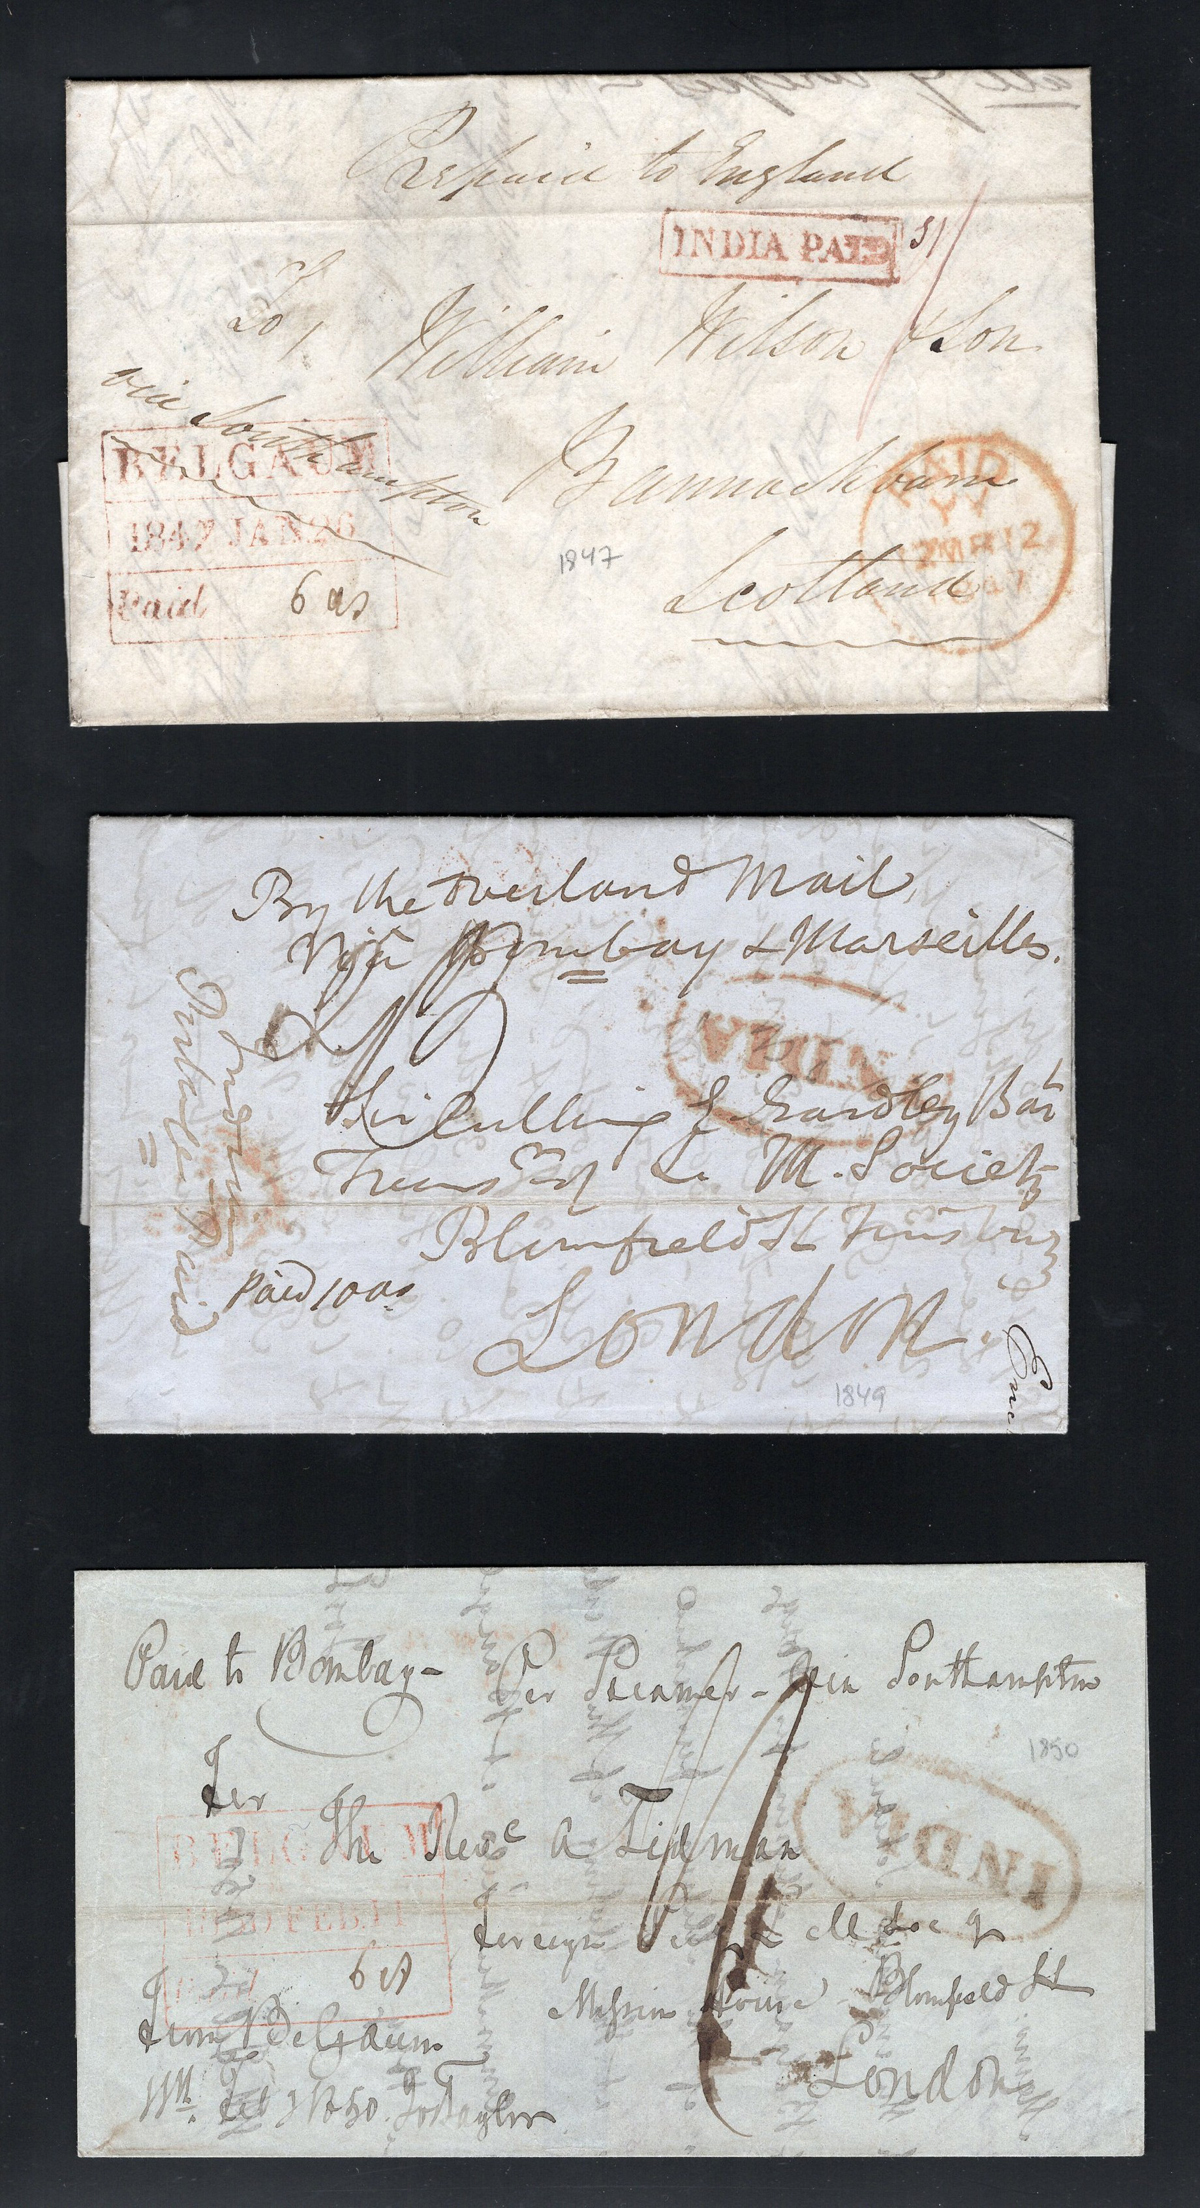 Prepaid to England
INDIA PAID
1/
To,
William Wilson & Son
via Southampton
BELGAUM
1847 JAN 26
Paid 6 as
Bannockburn
Scotland
PAID
MR 12
1847
1847
By the Overland Mail,
Via Bombay & Marseilles.
INDIA
Sir Culling E Eardley Bart
Treasr of L. M. Society
Blomfield St Finsbury
London.
Paid 10 as
Paid
1849
Paid to Bombay - Per Steamer - via Southampton
1850
For
The Revd A Tidman
INDIA
BELGAUM
FEB 11
6 as
Foreign Secy L M Soc y
Mission House Blomfield St
London
From Belgaum
11th Feb y 1850 Taylor